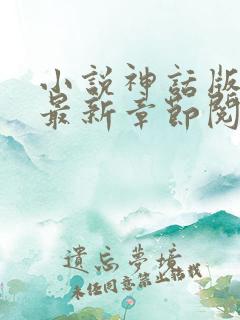 小說神話版
最新章節閱
遺忘夢境
未经同意禁止转载